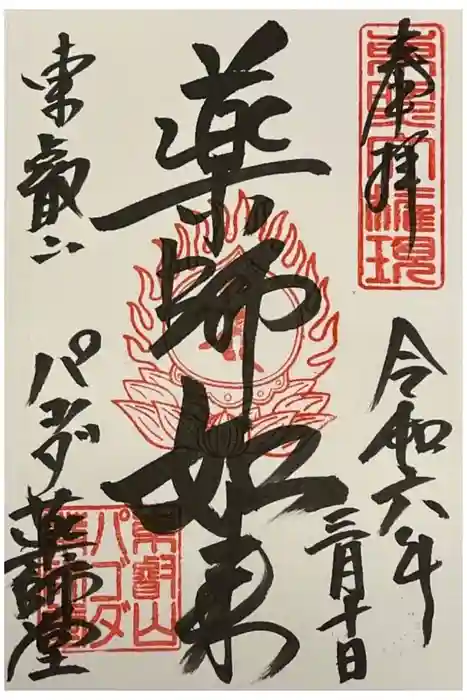 奉拝
東照大権現
令和六年
三月十日
薬師如来
東叡山
パゴダ薬師堂
東叡山
パゴダ
薬師堂